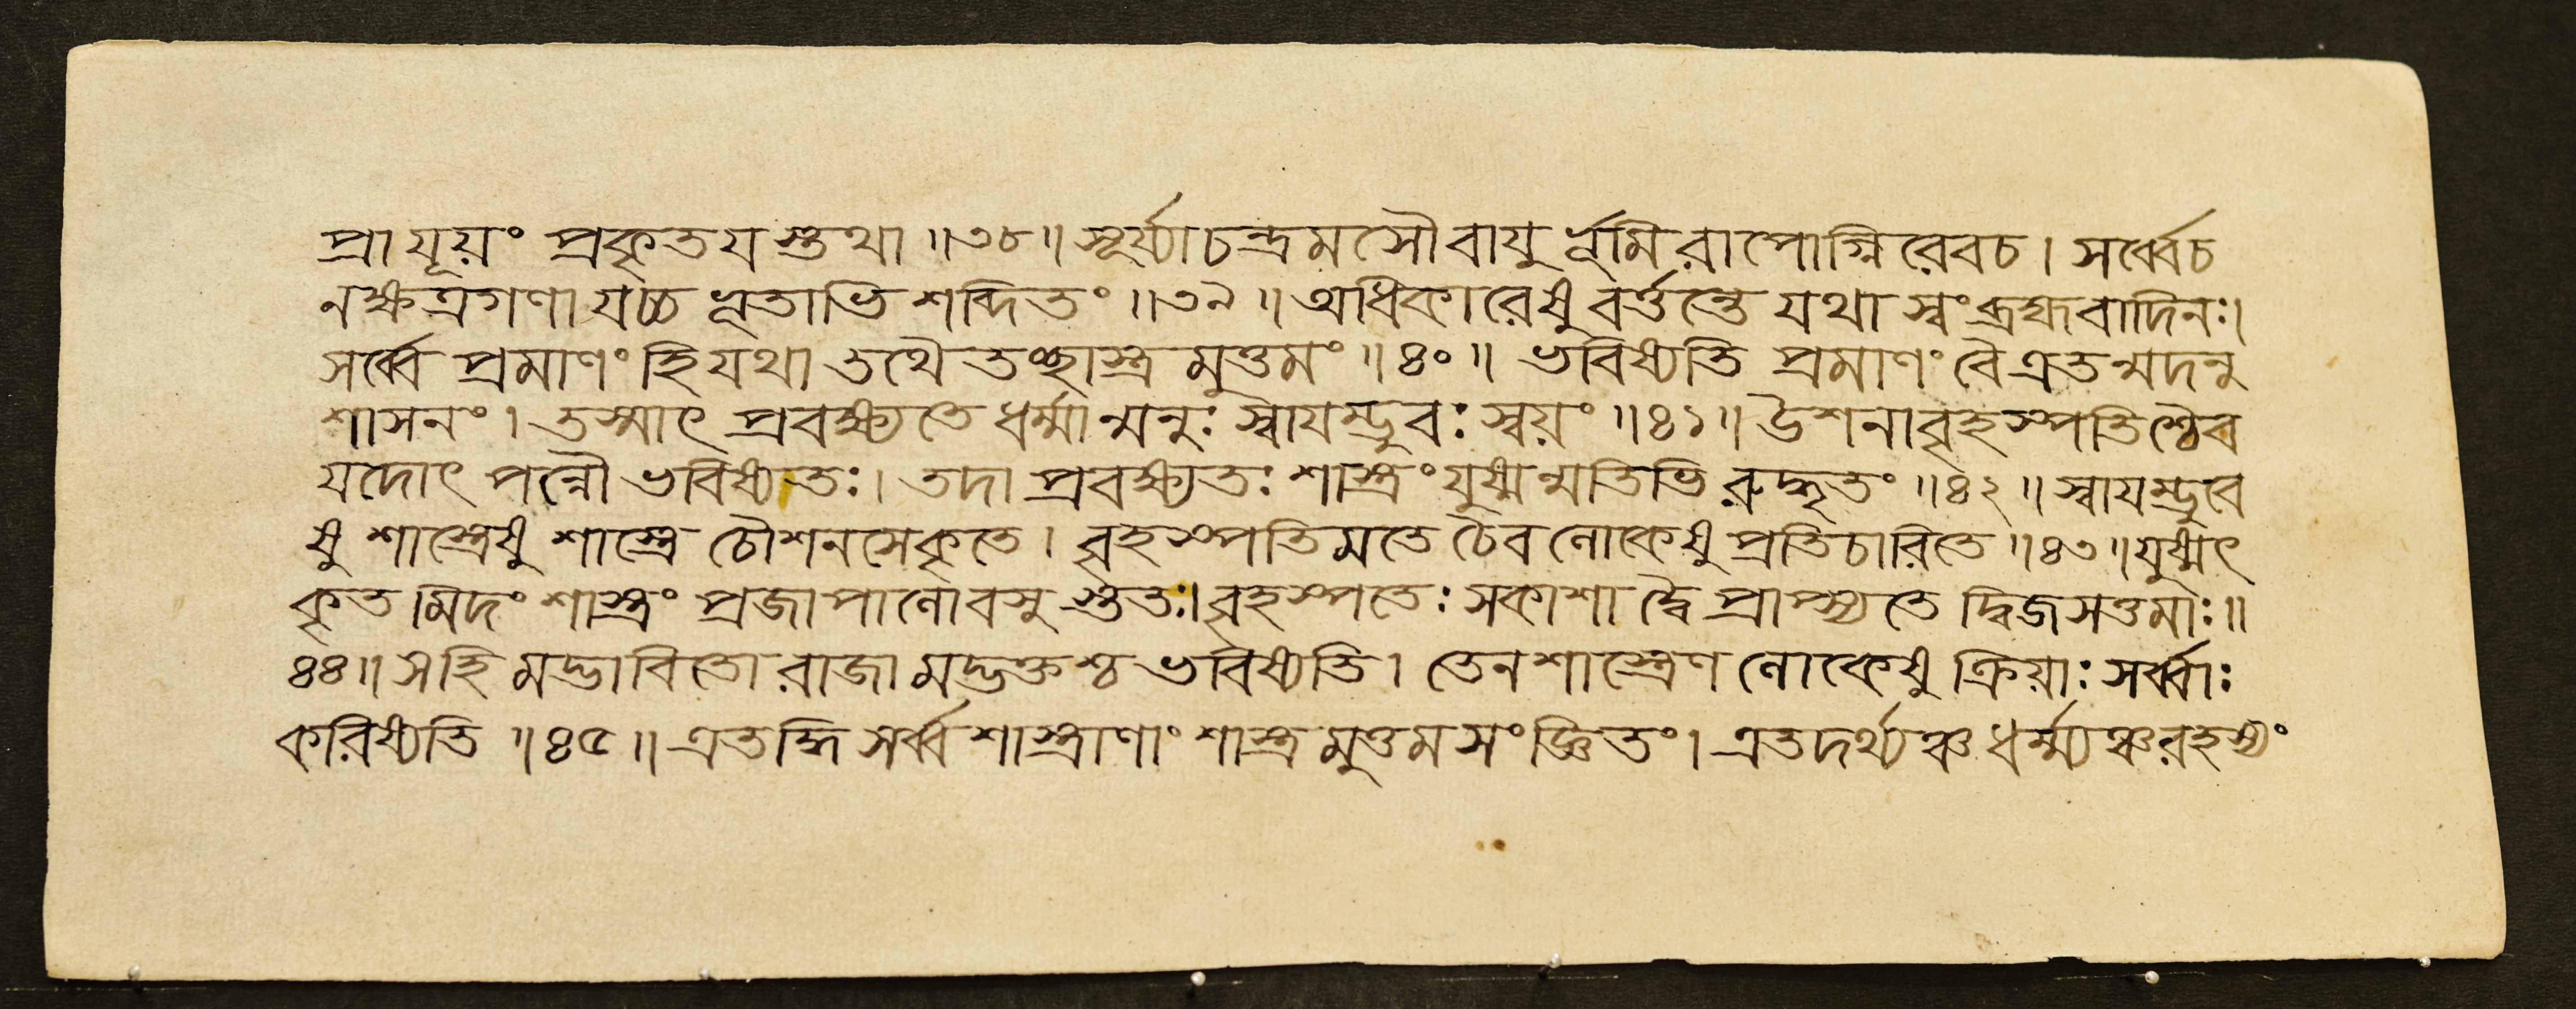 প্রা যূয়ং প্রকৃতয স্তথা ॥৩৮॥ সূর্য্যাচন্দ্রমসৌবাযু র্ভূমি রাপোগ্নি রেবচ। সর্ব্বেচ
নক্ষত্রগণা যচ্চ ভূতাভি শব্দিতং ॥৩৯॥ অধিকারেষু বর্ত্তন্তে যথা স্বংব্রহ্মবাদিনঃ।
সর্ব্বে প্রমাণং হি যথা তথৈ তচ্ছাস্ত্র মুত্তমং ॥৪০॥ ভবিষ্যতি প্রমাণং বৈ এতন্মদনু
শাসনং। তস্মাৎ প্রবক্ষ্যতে ধর্ম্মান্মনুঃ স্বাযম্ভুবঃ স্বয়ং ॥৪১॥ উশনাবৃহস্পতিশ্চৈব
যদোৎ পন্নৌ ভবিষ্যতঃ। তদা প্রবক্ষ্যতঃ শাস্ত্রং যুষ্মন্মতিভি রুদ্ধৃতং ॥৪২॥ স্বাযম্ভুবে
ষু শাস্ত্রেষু শাস্ত্রে চৌশনসেকৃতে। বৃহস্পতিমতে চৈব লোকেষু প্রতিচারিতে ॥৪৩॥ যুষ্মৎ
কৃত মিদং শাস্ত্রং প্রজাপালোবসু স্ততঃ। বৃহস্পতেঃ সকাশা দ্বৈ প্রাপ্স্যতে দ্বিজসত্তমাঃ॥
৪৪॥ সহি মদ্ভাবিতো রাজা মদ্ভক্তশ্চ ভবিষ্যতি। তেন শাস্ত্রেণ লোকেষু ক্রিয়াঃ সর্ব্বাঃ
করিষ্যতি ॥৪৫॥ এতদ্ধি সর্ব্ব শাস্ত্রাণাং শাস্ত্র মুত্তম সংজ্ঞিতং। এতদর্থ্যঞ্চ ধর্ম্ম্যঞ্চ রহস্যং